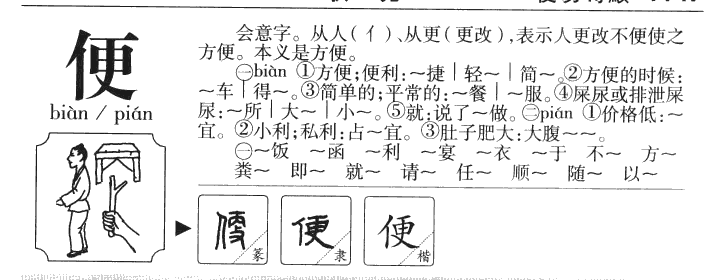 便
biàn / pián
会意字。从人(亻)、从更(更改),表示人更改不便使之
方便。本义是方便。
㊀biàn ①方便;便利:～捷｜轻～｜简～。②方便的时候:
～车｜得～。③简单的;平常的:～餐｜～服。④屎尿或排泄屎
尿:～所｜大～｜小～。⑤就:说了～做。㊁pián ①价格低:～
宜。②小利;私利:占～宜。③肚子肥大:大腹～～。
㊀～饭 ～函 ～利 ～宴 ～衣 ～于 不～ 方～
粪～ 即～ 就～ 请～ 任～ 顺～ 随～ 以～
便 篆 便 隶 便 楷